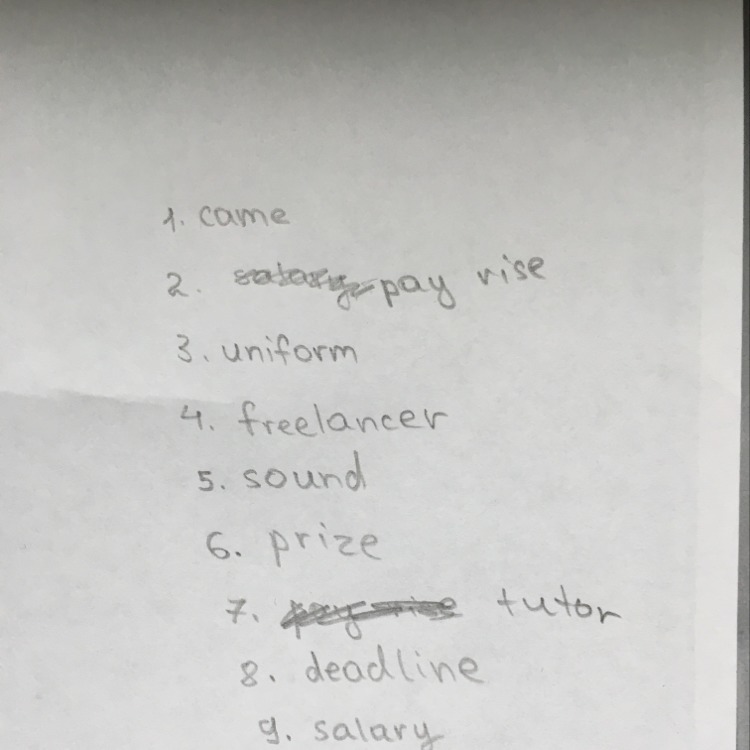 1. came
2. salary pay rise
3. uniform
4. freelancer
5. sound
6. prize
7. pay rise tutor
8. deadline
9. salary